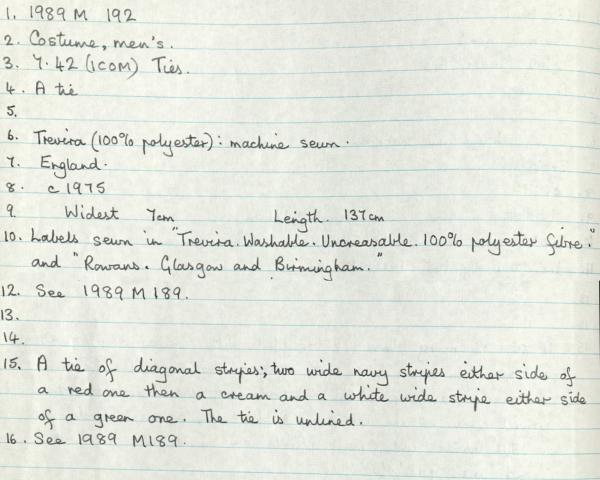 1. 1989 M 192
2. Costume, men's.
3. 7.42 (ICOM) Ties.
4. A tie
5.
6. Trevira (100% polyester): machine sewn.
7. England.
8. c 1975
9. Widest 7cm Length. 137cm
10. Labels sewn in "Trevira. Washable. Uncreasable. 100% polyester fibre."
and "Rowans. Glasgow and Birmingham."
12. See 1989 M 189.
13.
14.
15. A tie of diagonal stripes; two wide navy stripes either side of
a red one then a cream and a white wide stripe either side
of a green one. The tie is unlined.
16. See 1989 M189.